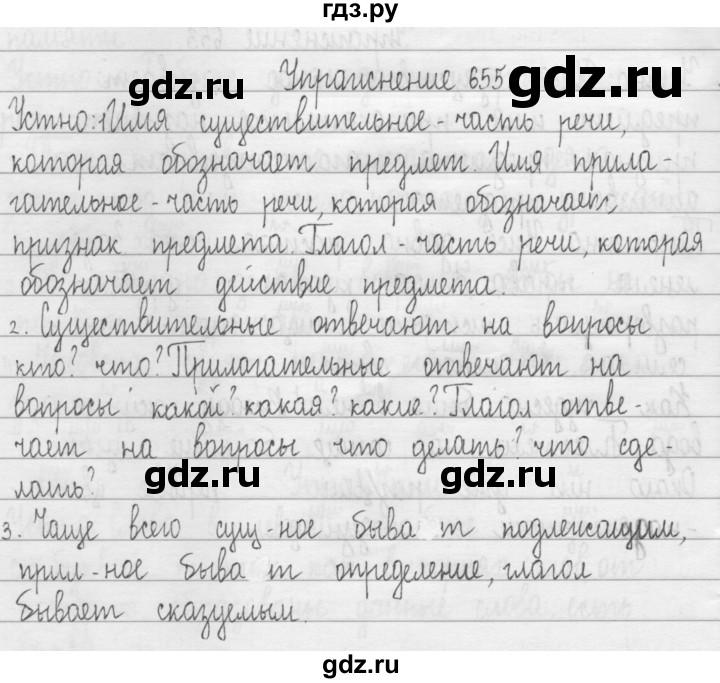 гдз.ру
gdz.ru gdz.ru
Упражнение 655
Устно: 1 Имя существительное - часть речи,
которая обозначает предмет. Имя прила-
гательное - часть речи, которая обозначает
признак предмета. Глагол - часть речи, которая
обозначает действие предмета.
gdz.ru gdz.ru
2. Существительные отвечают на вопросы
кто? что? Прилагательные отвечают на
вопросы какой? какая? какие? Глагол отве-
чает на вопросы что делать? что сде-
лать?
gdz.ru gdz.ru
3. Чаще всего сущ-ное быва т подлежащим,
прил-ное быва т определение, глагол
бывает сказуемым.
gdz.ru